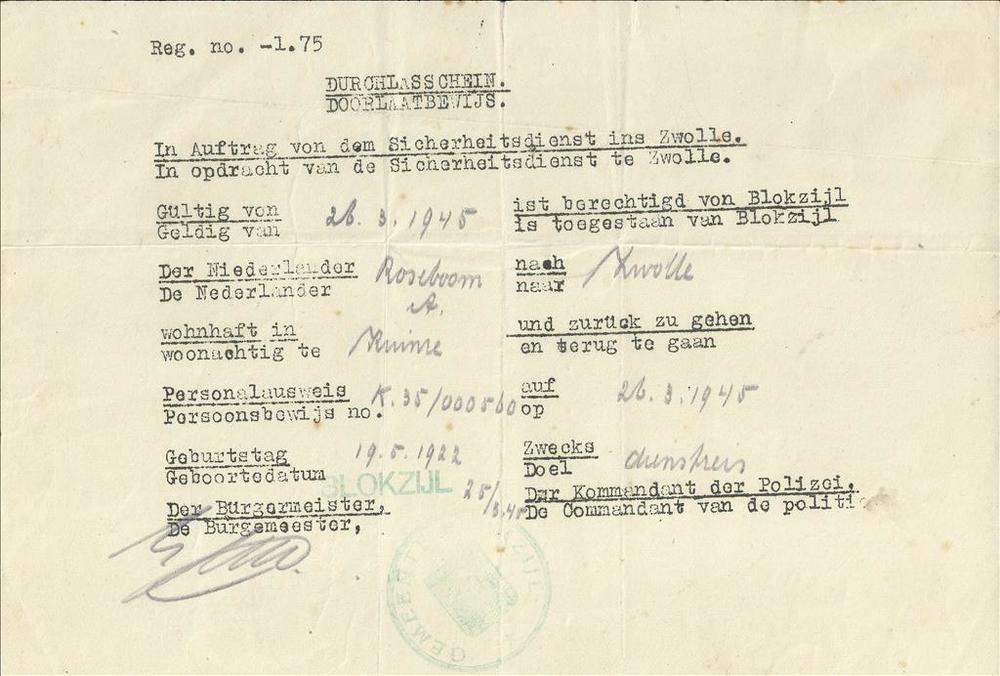 Reg. no. -1.75
DURCHLASSCHEIN.
DOORLAATBEWIJS.
In Auftrag von dem Sicherheitsdienst ins Zwolle.
In opdracht van de Sicherheitsdienst te Zwolle.
Gültig von 26.3.1945 ist berechtigd von Blokzijl
Geldig van is toegestaan van Blokzijl
Der Niederlander Roseboom nach Zwolle
De Nederlander A. naar
wohnhaft in Kuinre und zurück zu gehen
woonachtig te en terug te gaan
Personalausweis K.35/000560 auf 26.3.1945
Persoonsbewijs no. op
Geburtstag 19.5.1922 Zwecks dienstreis
Geboortedatum Doel
BLOKZIJL 25/3.45
Der Bürgermeister, Der Kommandant der Polizei,
De Burgemeester, De Commandant van de politi
GEMEENTE BLOKZIJL